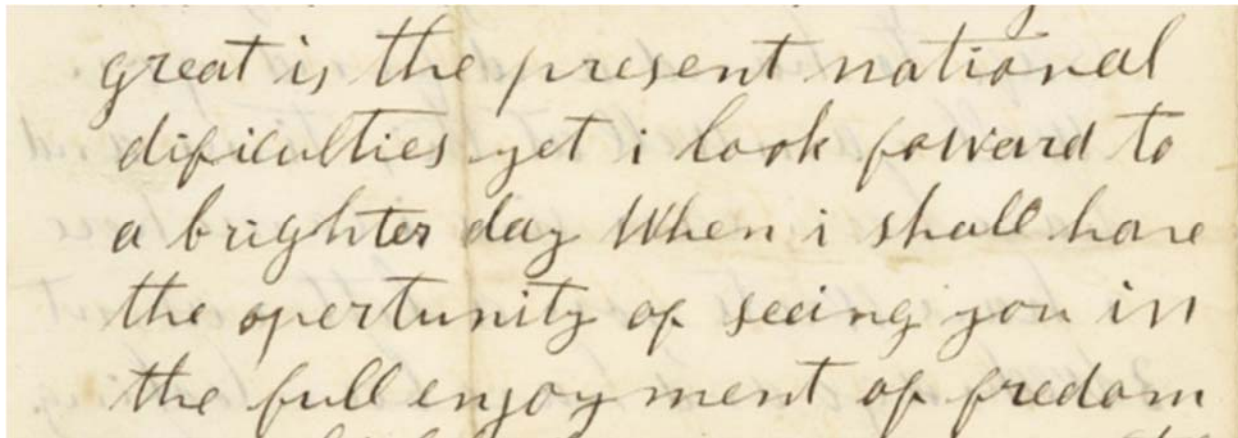 great is the present national
dificulties yet i look foward to
a brighter day When i shall have
the opertunity of seeing you in
the full enjoyment of freedom